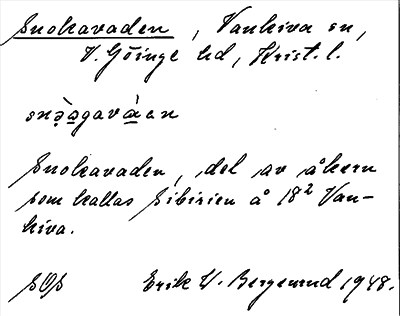 Snokavaden, Vankiva sn,
V. Göinge hd, Krist. l.
Snokavaden, del av åkern
som kallas Sibirien å 18² Van-
kiva.
SOS Erik W. Bergemrud 1948.